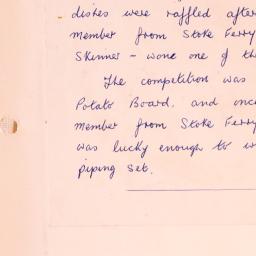 dishes were raffled after
member from Stoke Ferry
Skinner - wone one of th
The competition was
Potato Board, and once
member from Stoke Ferry
was lucky enough to w
piping set.